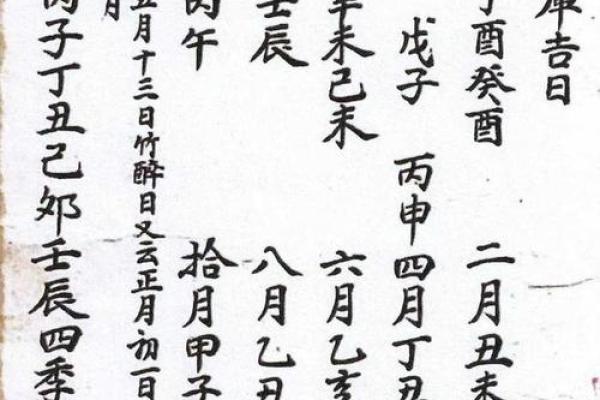 庫吉日
酉癸酉 二月丑未
戊子 丙申四月丁丑
辛未己未 六月乙亥
壬辰 八月乙丑
丙午 拾月甲子
月
五月十三日竹醉日又云正月初一日
丙子丁丑己夘壬辰四季